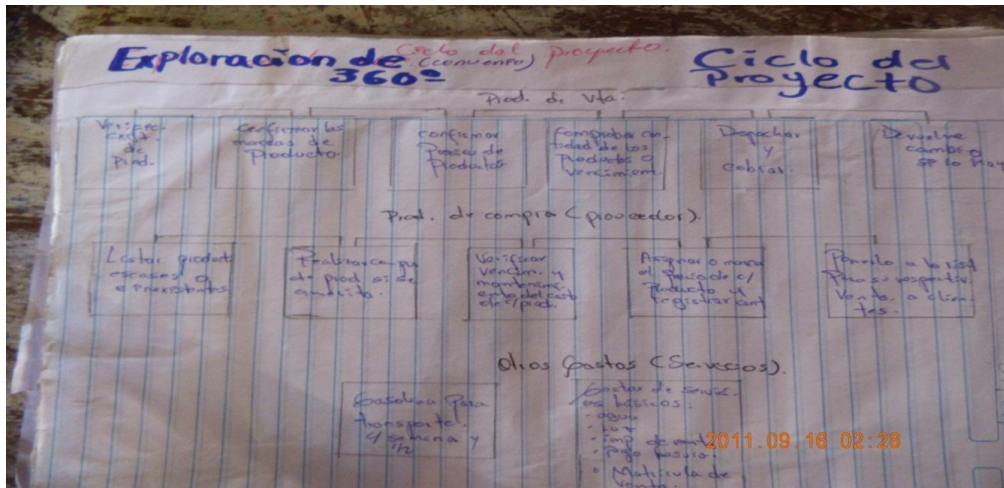 Exploración de
360º
Ciclo del proyecto.
(convenio)
Ciclo del
Proyecto
Prod. de Vta.
de
Prod.
Confirmar las
marcas de
Producto.
Confirmar
Precios de
Productos
Comprobar can-
tidad de los
Productos o
Vencimient.
Despachar
y
cobrar.
Devuelve
cambio
si lo hay
Prod. de compra (proveedor).
Listar product
escasos o
inexistentes
Realizar compra
de prod. si se
amerita.
Verificar
vencim. y
mantenimi-
ento del costo
de c/prod.
Asignar o marcar
el precio de c/
Producto y
registrar cant
Ponerlo a la vist
Para su respectiv
Venta a clien-
tes.
Otros Gastos (Servicios).
Gasolina para
transporte.
c/ semana y
1/2
Gastos de servic.
os básicos.
• agua
• Luz
• imp. de renta
• Pago basura.
• Matrícula de
Venta.
2011.09.16 02:28